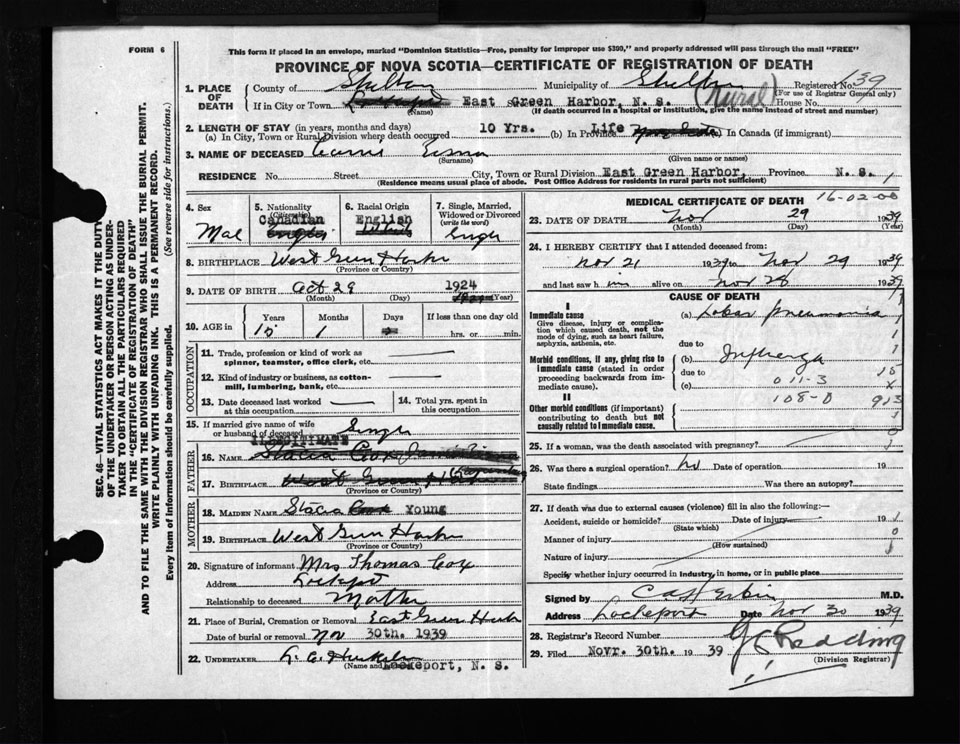 FORM 6
This form if placed in an envelope, marked "Dominion Statistics—Free, penalty for improper use $300," and properly addressed will pass through the mail "FREE"
PROVINCE OF NOVA SCOTIA—CERTIFICATE OF REGISTRATION OF DEATH
1. PLACE OF DEATH
County of Municipality of Registered No. 39
(For use of Registrar General only)
If in City or Town East Green Harbor, N. S. (Rural) House No.
(Name) (If death occurred in a hospital or institution, give the name instead of street and number)
2. LENGTH OF STAY (in years, months and days)
(a) In City, Town or Rural Division where death occurred 10 Yrs. (b) In Province Life In Canada (if immigrant)
3. NAME OF DECEASED
(Surname) (Given name or names)
RESIDENCE No. Street City, Town or Rural Division East Green Harbor, Province N. S.
(Residence means usual place of abode. Post Office Address for residents in rural parts not sufficient)
4. Sex Mal
5. Nationality (Citizenship) Canadian
6. Racial Origin English
7. Single, Married, Widowed or Divorced (write the word) Single
8. BIRTHPLACE West Green Harbor
(Province or Country)
9. DATE OF BIRTH Oct 29 1924
(Month) (Day) (Year)
10. AGE in Years Months Days If less than one day old
1 hrs. or min.
OCCUPATION
11. Trade, profession or kind of work as spinner, teamster, office clerk, etc.
12. Kind of industry or business, as cotton-mill, lumbering, bank, etc.
13. Date deceased last worked at this occupation
14. Total yrs. spent in this occupation
15. If married give name of wife or husband of deceased Single
ILLEGITIMATE
FATHER
16. NAME
17. BIRTHPLACE
(Province or Country)
MOTHER
18. MAIDEN NAME Stacia Young
19. BIRTHPLACE West Green Harbor
(Province or Country)
20. Signature of informant Mrs Thomas Cox
Address Lockeport
Relationship to deceased Mother
21. Place of Burial, Cremation or Removal East Green Harbor
Date of burial or removal Nov 30th. 1939
22. UNDERTAKER
(Name and Lockeport, N. S.
MEDICAL CERTIFICATE OF DEATH 16-02-00
23. DATE OF DEATH Nov 29 1939
(Month) (Day) (Year)
24. I HEREBY CERTIFY that I attended deceased from:
Nov 21 1939 to Nov 29 1939
and last saw him alive on Nov 28 1939
CAUSE OF DEATH
I
Immediate cause
Give disease, injury or complication which caused death, not the mode of dying, such as heart failure, asphyxia, asthenia, etc.
(a) Lobar pneumonia
due to
Morbid conditions, if any, giving rise to immediate cause (stated in order proceeding backwards from immediate cause).
(b)
due to
(c) 011-3
108-0
II
Other morbid conditions (if important) contributing to death but not causally related to immediate cause.
25. If a woman, was the death associated with pregnancy?
26. Was there a surgical operation? No Date of operation 19
State findings Was there an autopsy?
27. If death was due to external causes (violence) fill in also the following:—
Accident, suicide or homicide? Date of injury 19
(State which)
Manner of injury
(How sustained)
Nature of injury
Specify whether injury occurred in industry, in home, or in public place
Signed by M.D.
Address Lockeport Date Nov 30 1939
28. Registrar's Record Number
29. Filed Novr. 30th. 1939
Redding
(Division Registrar)
SEC. 46—VITAL STATISTICS ACT MAKES IT THE DUTY
OF THE UNDERTAKER OR PERSON ACTING AS UNDERTAKER TO OBTAIN ALL THE PARTICULARS REQUIRED
IN THE "CERTIFICATE OF REGISTRATION OF DEATH"
AND TO FILE THE SAME WITH THE DIVISION REGISTRAR WHO SHALL ISSUE THE BURIAL PERMIT.
WRITE PLAINLY WITH UNFADING INK. THIS IS A PERMANENT RECORD.
Every item of information should be carefully supplied. (See reverse side for instructions.)